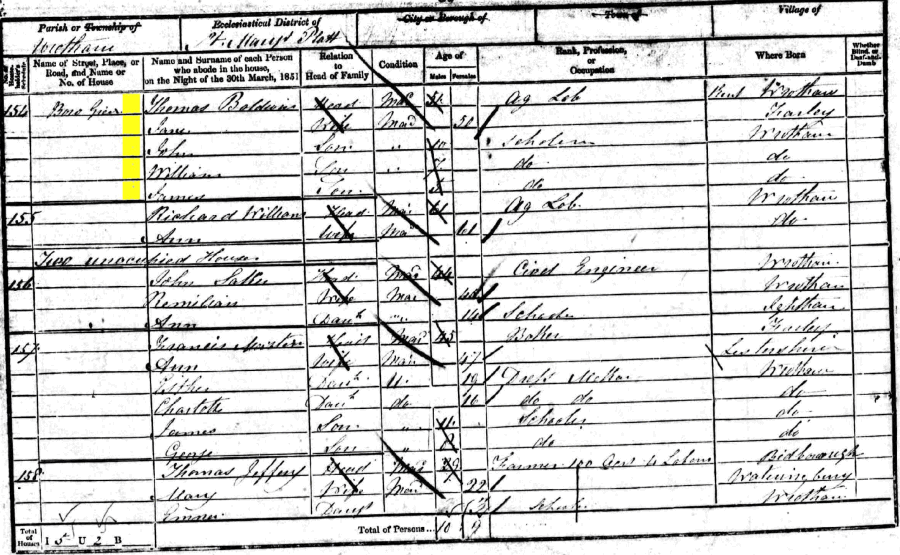 Parish or Township of Wrotham
Ecclesiastical District of St. Marys Platt
City or Borough of
Town of
Village of
Name of Street, Place, or Road, and Name or No. of House
Name and Surname of each Person who abode in the house, on the Night of the 30th March, 1851
Relation to Head of Family
Condition
Age of
Males Females
Rank, Profession, or Occupation
Where Born
Whether Blind, or Deaf-and-Dumb
154 Thomas Baldwin Head Mar 51 Ag Lab Kent Wrotham
Jane Wife Mar 50 Farley
John Son " 10 Scholar Wrotham
William Son " 7 do do
James Son do do
155 Richard William Head Mar 61 Ag Lab Wrotham
Ann Wife Mar 61 do
Two unoccupied Houses
156 John Head Mar 44 Civil Engineer Wrotham
Wife Mar Wrotham
Ann Daur " 14 Scholar Ightham
157 Francis Head Mar 45 Baker Farley
Ann Wife Mar 47 Leistershire
Esther Daur U 19 Dress Maker Wrotham
Charlotte Daur do 16 do do do
James Son " 11 Scholar do
George Son " do do
158 Thomas Jeffery Head Mar 29 Farmer 100 Acres 4 Labors Bidborough
Mary Wife Mar 22 Wateringbury
Emma Daur Scholar Wrotham
Total of Houses 5 U 2 B
Total of Persons... 10 9